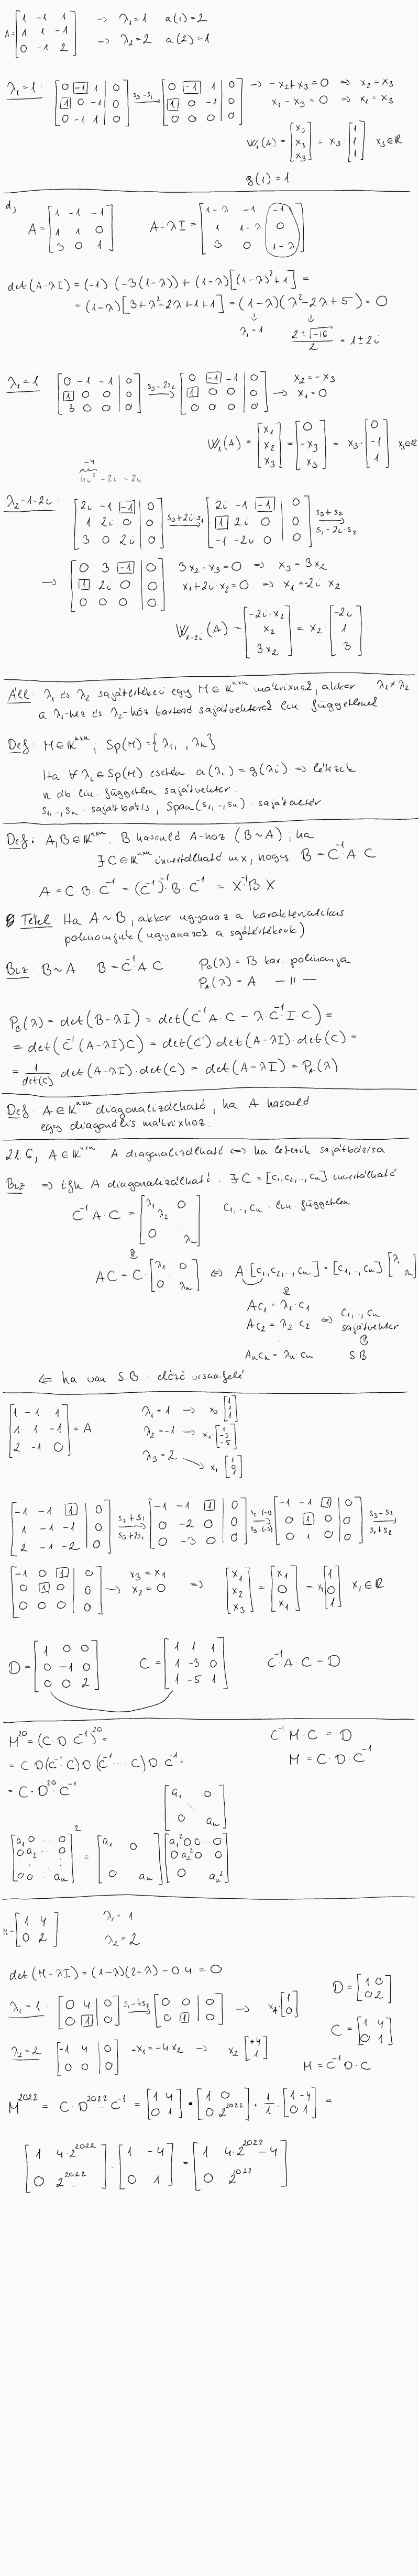 A = [1 -1 1; 1 1 -1; 0 -1 2] → λ₁=1 a(1)=2
→ λ₂=2 a(2)=1
λ₁=1: [0 -1 1 | 0; 1 0 -1 | 0; 0 -1 1 | 0] S₃-S₁→ [0 -1 1 | 0; 1 0 -1 | 0; 0 0 0 | 0] → -x₂+x₃=0 ⇒ x₂=x₃
x₁-x₃=0 ⇒ x₁=x₃
W₁(A) = [x₃; x₃; x₃] = x₃ [1; 1; 1] x₃∈ℝ
g(1)=1
d,
A = [1 -1 -1; 1 1 0; 3 0 1] A-λI = [1-λ -1 -1; 1 1-λ 0; 3 0 1-λ]
det(A-λI) = (-1)·(-3(1-λ)) + (1-λ)[(1-λ)²+1] =
= (1-λ)[3+λ²-2λ+1+1] = (1-λ)(λ²-2λ+5) = 0
↓ λ₁=1 ↓ (2±√-16)/2 = 1±2i
λ₁=1 [0 -1 -1 | 0; 1 0 0 | 0; 3 0 0 | 0] S₃-3S₂→ [0 -1 -1 | 0; 1 0 0 | 0; 0 0 0 | 0] → x₂=-x₃
x₁=0
W₁(A) = [x₁; x₂; x₃] = [0; -x₃; x₃] = x₃·[0; -1; 1] x₃∈ℝ
-4
4i² -2i -2i
λ₂=1-2i: [2i -1 -1 | 0; 1 2i 0 | 0; 3 0 2i | 0] S₃+2i·S₁→ [2i -1 -1 | 0; 1 2i 0 | 0; -1 -2i 0 | 0] S₃+S₂ S₁-2i·S₂→
→ [0 3 -1 | 0; 1 2i 0 | 0; 0 0 0 | 0] 3x₂-x₃=0 ⇒ x₃=3x₂
x₁+2i·x₂=0 ⇒ x₁=-2i·x₂
W₁₋₂ᵢ(A) = [-2i·x₂; x₂; 3x₂] = x₂·[-2i; 1; 3]
Áll: λ₁ és λ₂ sajátértékei egy M∈𝕂ⁿˣⁿ mátrixnak, akkor λ₁≠λ₂
a λ₁-hez és λ₂-höz tartozó sajátvektorok lin. függetlenek.
Def: M∈𝕂ⁿˣⁿ; Sp(M)={λ₁,..,λₙ}
Ha ∀λᵢ∈Sp(M) esetén a(λᵢ)=g(λᵢ) ⇒ létezik
n db lin. független sajátvektor.
s₁,..,sₙ sajátbázis; Span(s₁,..,sₙ) sajátaltér
Def: A,B∈𝕂ⁿˣⁿ. B hasonló A-hoz (B~A), ha
∃C∈𝕂ⁿˣⁿ invertálható mx, hogy B=C⁻¹·A·C
A = C·B·C⁻¹ = (C⁻¹)⁻¹·B·C⁻¹ = X⁻¹·B·X
Tétel: Ha A~B, akkor ugyanaz a karakterisztikus
polinomjuk (ugyanazok a sajátértékeik)
Biz: B~A B=C⁻¹·A·C P_B(λ) = B kar. polinomja
P_A(λ) = A —||—
P_B(λ) = det(B-λI) = det(C⁻¹A·C - λ·C⁻¹·I·C) =
= det(C⁻¹(A-λI)C) = det(C⁻¹)·det(A-λI)·det(C) =
= 1/det(C)·det(A-λI)·det(C) = det(A-λI) = P_A(λ)
Def: A∈𝕂ⁿˣⁿ diagonalizálható, ha A hasonló
egy diagonális mátrixhoz.
21.6, A∈𝕂ⁿˣⁿ. A diagonalizálható ⇔ ha létezik sajátbázisa
Biz: ⇒ tfh A diagonalizálható. ∃C=[c₁,c₂,..,cₙ] invertálható
C⁻¹·A·C = [λ₁ 0; λ₂; 0 λₙ] c₁,..,cₙ lin. független
⇕
AC = C·[λ₁ 0; 0 λₙ] ⇔ A·[c₁,c₂,..,cₙ] = [c₁,..,cₙ]·[λ₁ λₙ]
⇕
Ac₁=λ₁·c₁
Ac₂=λ₂·c₂ ⇔ c₁,..,cₙ sajátvektor
⋮ ⇕
Acₙ=λₙ·cₙ S.B.
⇐ ha van S.B. előző visszafelé
[1 -1 1; 1 1 -1; 2 -1 0] = A λ₁=1 → x₃·[1; 1; 1]
λ₂=-1 → x₁·[1; -3; -5]
λ₃=2 → x₁·[1; 0; 1]
[-1 -1 1 | 0; 1 -1 -1 | 0; 2 -1 -2 | 0] S₂+S₁ S₃+2S₁→ [-1 -1 1 | 0; 0 -2 0 | 0; 0 -3 0 | 0] → [-1 -1 1 | 0; 0 1 0 | 0; 0 1 0 | 0] S₃-S₂ S₁+S₂→
[-1 0 1 | 0; 0 1 0 | 0; 0 0 0 | 0] → x₃=x₁ x₂=0 ⇒ [x₁; x₂; x₃] = [x₁; 0; x₁] = x₁[1; 0; 1] x₁∈ℝ
D = [1 0 0; 0 -1 0; 0 0 2] C = [1 1 1; 1 -3 0; 1 -5 1] C⁻¹A·C = D
M²⁰ = (C·D·C⁻¹)²⁰ = C⁻¹M·C = D
= C·D(C⁻¹C)D(C⁻¹···C)D·C⁻¹ = M = C·D·C⁻¹
= C·D²⁰·C⁻¹
[a₁ 0; 0 aₙ]
[a₁ 0 ·· 0; 0 a₂ ·· 0; 0 0 ·· aₙ]² = [a₁ 0; 0 aₙ] [a₁² 0 0 0; 0 a₂² 0 0; 0 aₙ²]
M = [1 4; 0 2] λ₁=1
λ₂=2
det(M-λI) = (1-λ)(2-λ) - 0·4 = 0
λ₁=1: [0 4 | 0; 0 1 | 0] S₁-4S₂→ [0 0 | 0; 0 1 | 0] → x₁[1; 0] D = [1 0; 0 2]
λ₂=2 [-1 4 | 0; 0 0 | 0] -x₁=-4x₂ → x₂[+4; 1] C = [1 4; 0 1]
M = C⁻¹·D·C
M²⁰²² = C·D²⁰²²·C⁻¹ = [1 4; 0 1]·[1 0; 0 2²⁰²²]·1/1·[1 -4; 0 1] =
[1 4·2²⁰²²; 0 2²⁰²²]·[1 -4; 0 1] = [1 4·2²⁰²²-4; 0 2²⁰²²]